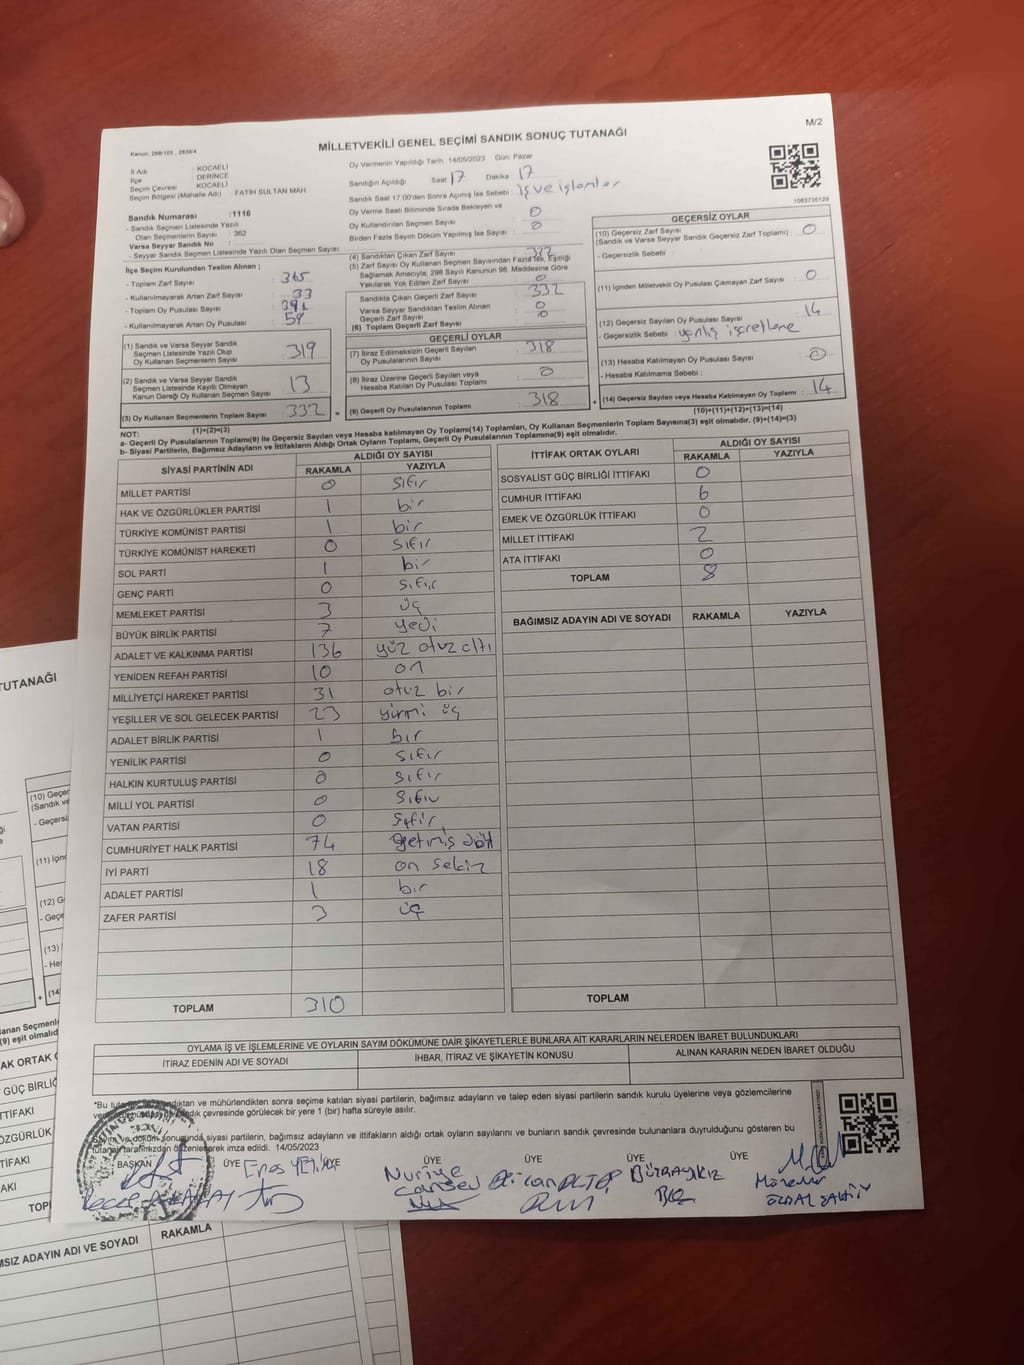 M/2
MİLLETVEKİLİ GENEL SEÇİMİ SANDIK SONUÇ TUTANAĞI
Kanun: 298/105 , 2839/4
İl Adı : KOCAELİ
İlçe : DERİNCE
Seçim Çevresi : KOCAELİ
Seçim Bölgesi (Mahalle Adı) : FATİH SULTAN MAH.
Sandık Numarası :1116
- Sandık Seçmen Listesinde Yazılı
Olan Seçmenlerin Sayısı : 362
Varsa Seyyar Sandık No :
- Seyyar Sandık Seçmen Listesinde Yazılı Olan Seçmen Sayısı:
Oy Vermenin Yapıldığı Tarih : 14/05/2023 Gün: Pazar
Sandığın Açıldığı Saat: 17 Dakika : 17
Sandık Saat 17.00'den Sonra Açılmış İse Sebebi : iş ve işlemler
Oy Verme Saati Bitiminde Sırada Bekleyen ve
Oy Kullandırılan Seçmen Sayısı : 0
Birden Fazla Sayım Döküm Yapılmış İse Sayısı : 0
1083735129
İlçe Seçim Kurulundan Teslim Alınan ;
- Toplam Zarf Sayısı : 365
- Kullanılmayarak Artan Zarf Sayısı : 33
- Toplam Oy Pusulası Sayısı
- Kullanılmayarak Artan Oy Pusulası : 59
(1) Sandık ve Varsa Seyyar Sandık
Seçmen Listesinde Yazılı Olup
Oy Kullanan Seçmenlerin Sayısı : 319
(2) Sandık ve Varsa Seyyar Sandık
Seçmen Listesinde Kayıtlı Olmayan
Kanun Gereği Oy Kullanan Seçmen Sayısı : 13
(3) Oy Kullanan Seçmenlerin Toplam Sayısı : 332
(1)+(2)=(3)
(4) Sandıktan Çıkan Zarf Sayısı : 332
(5) Zarf Sayısı Oy Kullanan Seçmen Sayısından Fazla İse, Eşitliği
Sağlamak Amacıyla, 298 Sayılı Kanunun 98. Maddesine Göre
Yakılarak Yok Edilen Zarf Sayısı : 0
Sandıkta Çıkan Geçerli Zarf Sayısı : 332
Varsa Seyyar Sandıktan Teslim Alınan
Geçerli Zarf Sayısı : 0
(6) Toplam Geçerli Zarf Sayısı : 0
GEÇERLİ OYLAR
(7) İtiraz Edilmeksizin Geçerli Sayılan
Oy Pusulalarının Sayısı : 318
(8) İtiraz Üzerine Geçerli Sayılan veya
Hesaba Katılan Oy Pusulası Toplamı : 0
(9) Geçerli Oy Pusulalarının Toplamı : 318
GEÇERSİZ OYLAR
(10) Geçersiz Zarf Sayısı : 0
(Sandık ve Varsa Seyyar Sandık Geçersiz Zarf Toplamı)
- Geçersizlik Sebebi :
(11) İçinden Milletvekili Oy Pusulası Çıkmayan Zarf Sayısı : 0
(12) Geçersiz Sayılan Oy Pusulası Sayısı : 14
- Geçersizlik Sebebi : yanlış işaretleme
(13) Hesaba Katılmayan Oy Pusulası Sayısı : 0
- Hesaba Katılmama Sebebi :
(14) Geçersiz Sayılan veya Hesaba Katılmayan Oy Toplamı : 14
(10)+(11)+(12)+(13)=(14)
NOT:
a- Geçerli Oy Pusulalarının Toplamı(9) ile Geçersiz Sayılan veya Hesaba katılmayan Oy Toplamı(14) Toplamları, Oy Kullanan Seçmenlerin Toplam Sayısına(3) eşit olmalıdır. (9)+(14)=(3)
b- Siyasi Partilerin, Bağımsız Adayların ve İttifakların Aldığı Ortak Oyların Toplamı, Geçerli Oy Pusulalarının Toplamına(9) eşit olmalıdır.
SİYASİ PARTİNİN ADI ALDIĞI OY SAYISI
RAKAMLA YAZIYLA
MİLLET PARTİSİ 0 sıfır
HAK VE ÖZGÜRLÜKLER PARTİSİ 1 bir
TÜRKİYE KOMÜNİST PARTİSİ 1 bir
TÜRKİYE KOMÜNİST HAREKETİ 0 sıfır
SOL PARTİ 1 bir
GENÇ PARTİ 0 sıfır
MEMLEKET PARTİSİ 3 üç
BÜYÜK BİRLİK PARTİSİ 7 yedi
ADALET VE KALKINMA PARTİSİ 136 yüz otuz altı
YENİDEN REFAH PARTİSİ 10 on
MİLLİYETÇİ HAREKET PARTİSİ 31 otuz bir
YEŞİLLER VE SOL GELECEK PARTİSİ 23 yirmi üç
ADALET BİRLİK PARTİSİ 1 bir
YENİLİK PARTİSİ 0 sıfır
HALKIN KURTULUŞ PARTİSİ 0 sıfır
MİLLİ YOL PARTİSİ 0 sıfır
VATAN PARTİSİ 0 sıfır
CUMHURİYET HALK PARTİSİ 74 yetmiş dört
İYİ PARTİ 18 on sekiz
ADALET PARTİSİ 1 bir
ZAFER PARTİSİ 3 üç
TOPLAM 310
İTTİFAK ORTAK OYLARI ALDIĞI OY SAYISI
RAKAMLA YAZIYLA
SOSYALİST GÜÇ BİRLİĞİ İTTİFAKI 0
CUMHUR İTTİFAKI 6
EMEK VE ÖZGÜRLÜK İTTİFAKI 0
MİLLET İTTİFAKI 2
ATA İTTİFAKI 0
TOPLAM 8
BAĞIMSIZ ADAYIN ADI VE SOYADI RAKAMLA YAZIYLA
TOPLAM
OYLAMA İŞ VE İŞLEMLERİNE VE OYLARIN SAYIM DÖKÜMÜNE DAİR ŞİKAYETLERLE BUNLARA AİT KARARLARIN NELERDEN İBARET BULUNDUKLARI
İTİRAZ EDENİN ADI VE SOYADI İHBAR, İTİRAZ VE ŞİKAYETİN KONUSU ALINAN KARARIN NEDEN İBARET OLDUĞU
ve mühürlendikten sonra seçime katılan siyasi partilerin, bağımsız adayların ve talep eden siyasi partilerin sandık kurulu üyelerine veya gözlemcilerine
çevresinde görülecek bir yere 1 (bir) hafta süreyle asılır.
ve döküm sonucunda siyasi partilerin, bağımsız adayların ve ittifakların aldığı ortak oyların sayılarını ve bunların sandık çevresinde bulunanlara duyrulduğunu gösteren bu
tutanak tarafımızdan düzenlenerek imza edildi. 14/05/2023
BAŞKAN ÜYE ÜYE ÜYE ÜYE ÜYE ÜYE
Nuriye
TUTANAĞI
(10) Geçer
(Sandık ve
- Geçersi
(11) İçin
(12) G
- Geçe
(13)
- He
(14
AK ORTAK
GÜÇ BİRLİĞ
İTTİFAKI
ÖZGÜRLÜK
TOP
MSIZ ADAYIN ADI VE SOYADI RAKAMLA